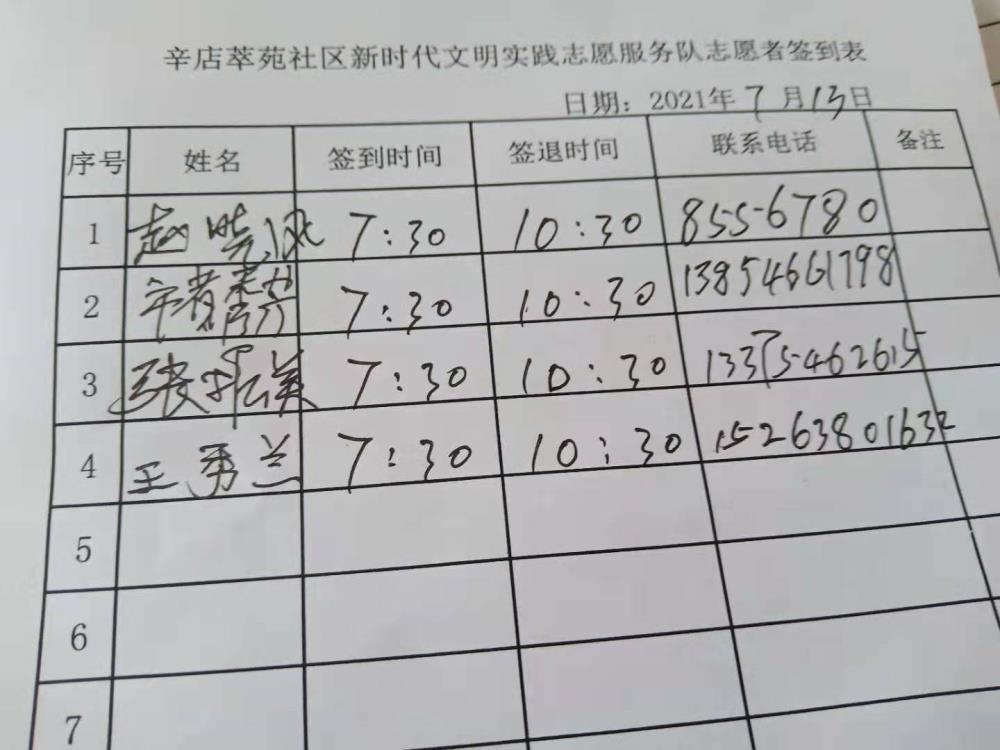 辛店萃苑社区新时代文明实践志愿服务队志愿者签到表
日期：2021年7月13日
序号 姓名 签到时间 签退时间 联系电话 备注
1 赵 7:30 10:30 8556780
2 7:30 10:30 13854661798
3 张 美 7:30 10:30 13375462615
4 王秀兰 7:30 10:30 15263801632
5
6
7